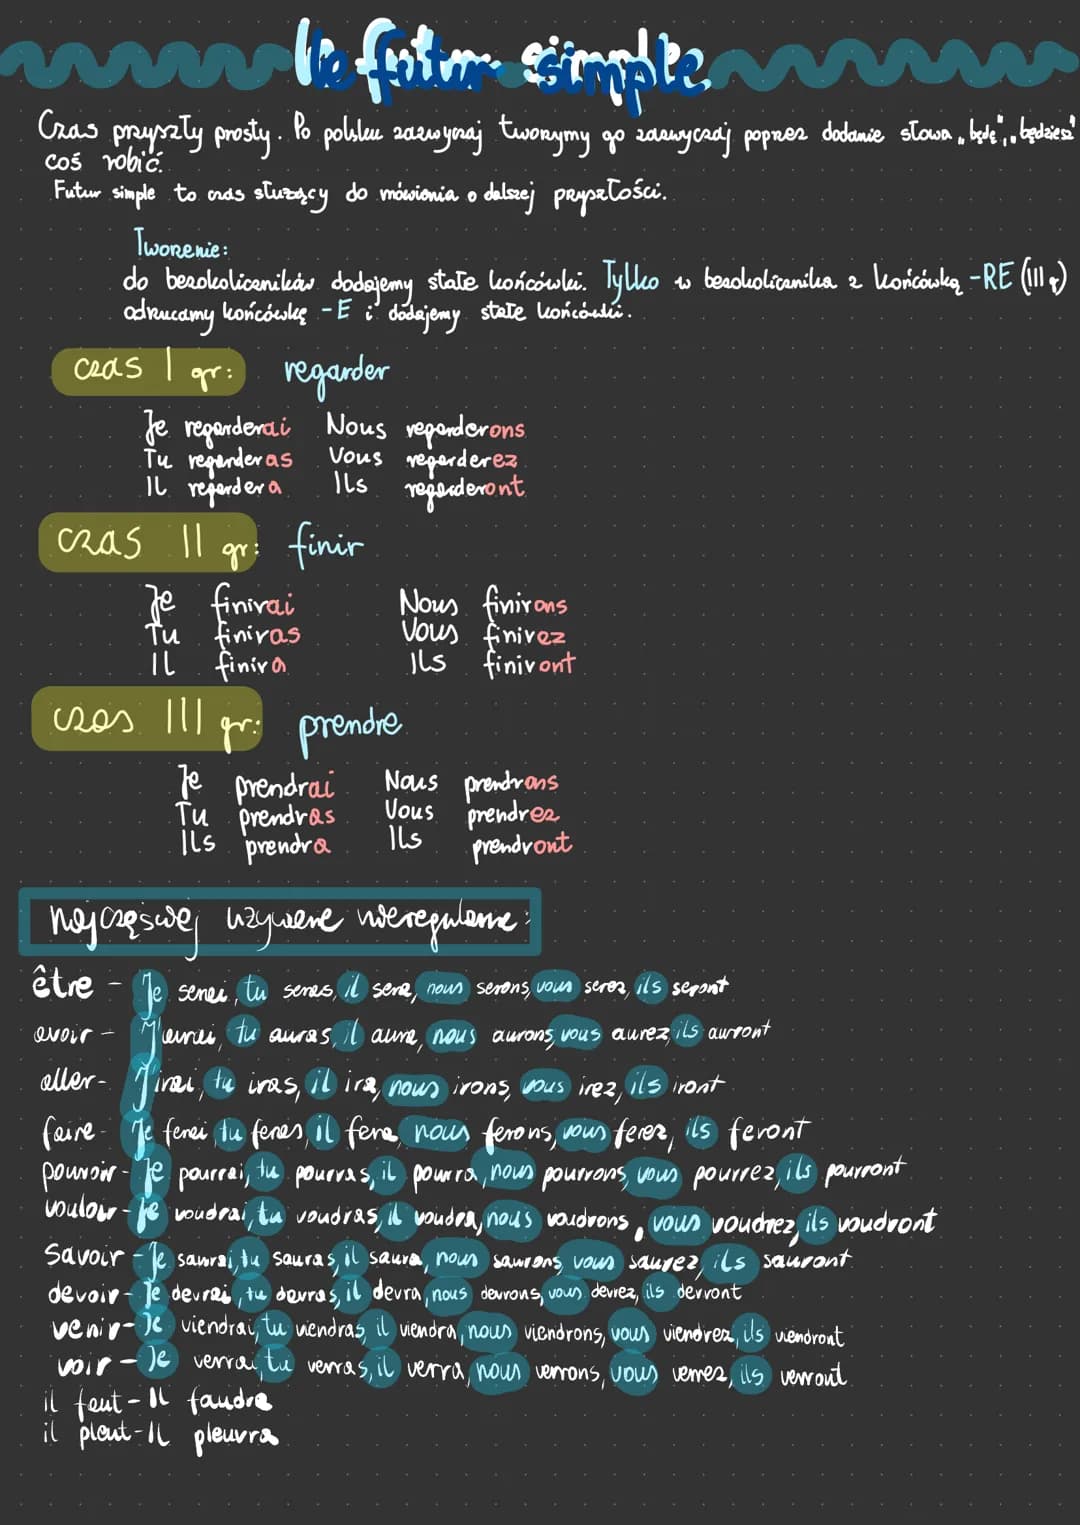 le futur simple
Czas przyszły prosty. Po polsku zazwyczaj tworzymy go zazwyczaj poprzez dodanie słowa „będę", „będziesz"
coś robić.
Futur simple to czas służący do mówienia o dalszej przyszłości.
Tworzenie:
do bezokoliczników dodajemy stałe końcówki. Tylko w bezokolicznika z końcówką -RE (III gr)
odrzucamy końcówkę -E i dodajemy stałe końcówki.
czas I gr: regarder
Je regarderai Nous regarderons
Tu regarderas Vous regarderez
Il regardera Ils regarderont
czas II gr: finir
Je finirai Nous finirons
Tu finiras Vous finirez
Il finira Ils finiront
czas III gr: prendre
Je prendrai Nous prendrons
Tu prendras Vous prendrez
Ils prendra Ils prendront
najczęściej używane nieregularne:
être - Je serai, tu seras, il sera, nous serons, vous serez, ils seront
avoir - J'aurai, tu auras, il aura, nous aurons, vous aurez, ils auront
aller - J'irai, tu iras, il ira, nous irons, vous irez, ils iront
faire - Je ferai, tu feras, il fera, nous ferons, vous ferez, ils feront
pouvoir - Je pourrai, tu pourras, il pourra, nous pourrons, vous pourrez, ils pourront
vouloir - Je voudrai, tu voudras, il voudra, nous voudrons, vous voudrez, ils voudront
Savoir - Je saurai, tu sauras, il saura, nous saurons, vous saurez, ils sauront
devoir - Je devrai, tu devras, il devra, nous devrons, vous devrez, ils devront
venir - Je viendrai, tu viendras, il viendra, nous viendrons, vous viendrez, ils viendront
voir - Je verrai, tu verras, il verra, nous verrons, vous verrez, ils verront
il faut - Il faudra
il pleut - Il pleuvra